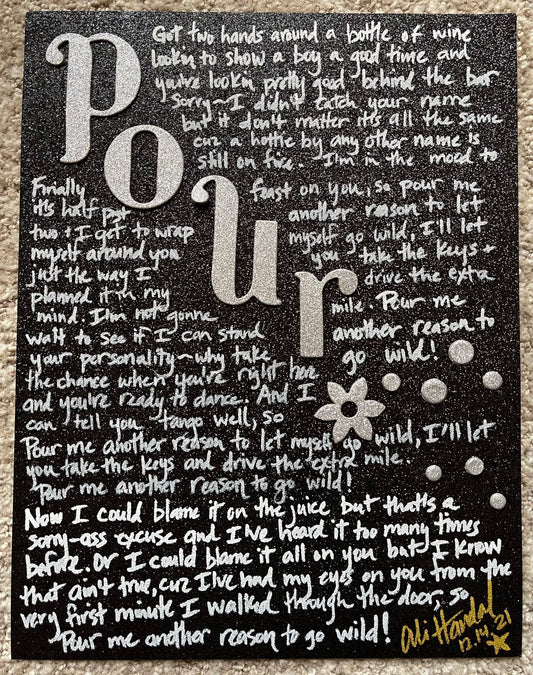 Pour
Got two hands around a bottle of wine
lookin to show a boy a good time and
you're lookin pretty good behind the bar
Sorry~I didn't catch your name
but it don't matter it's all the same
cuz a hottie by any other name is
still on fire. I'm in the mood to
feast on you, so pour me
another reason to let
myself go wild, I'll let
you take the keys +
drive the extra
mile. Pour me
another reason to
go wild!
Finally
it's half past
two + I get to wrap
myself around you
just the way I
planned it in my
mind. I'm not gonna
wait to see if I can stand
your personality~why take
the chance when you're right here
and you're ready to dance. And I
can tell you tango well, so
Pour me another reason to let myself go wild, I'll let
you take the keys and drive the extra mile.
Pour me another reason to go wild!
Now I could blame it on the juice but that's a
sorry-ass excuse and I've heard it too many times
before. Or I could blame it all on you but I know
that ain't true, cuz I've had my eyes on you from the
very first minute I walked through the door, so
Pour me another reason to go wild!
Ali Handal
12.14.21